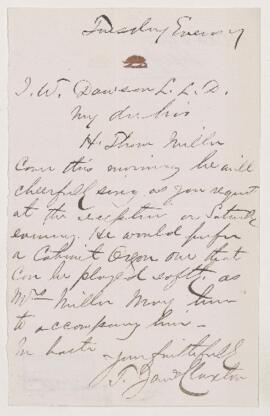 Tuesday Evening
J. W. Dawson L. L. D.
My dear Sir
H. Thom Miller
Come this morning he will
cheerfully sing as you request
at the reception on Saturday
evening. He would prefer
a Cabinet Organ one that
can be played softly as
Mrs Miller may
to accompany him —
In haste
yours faithfully
T. James Claxton